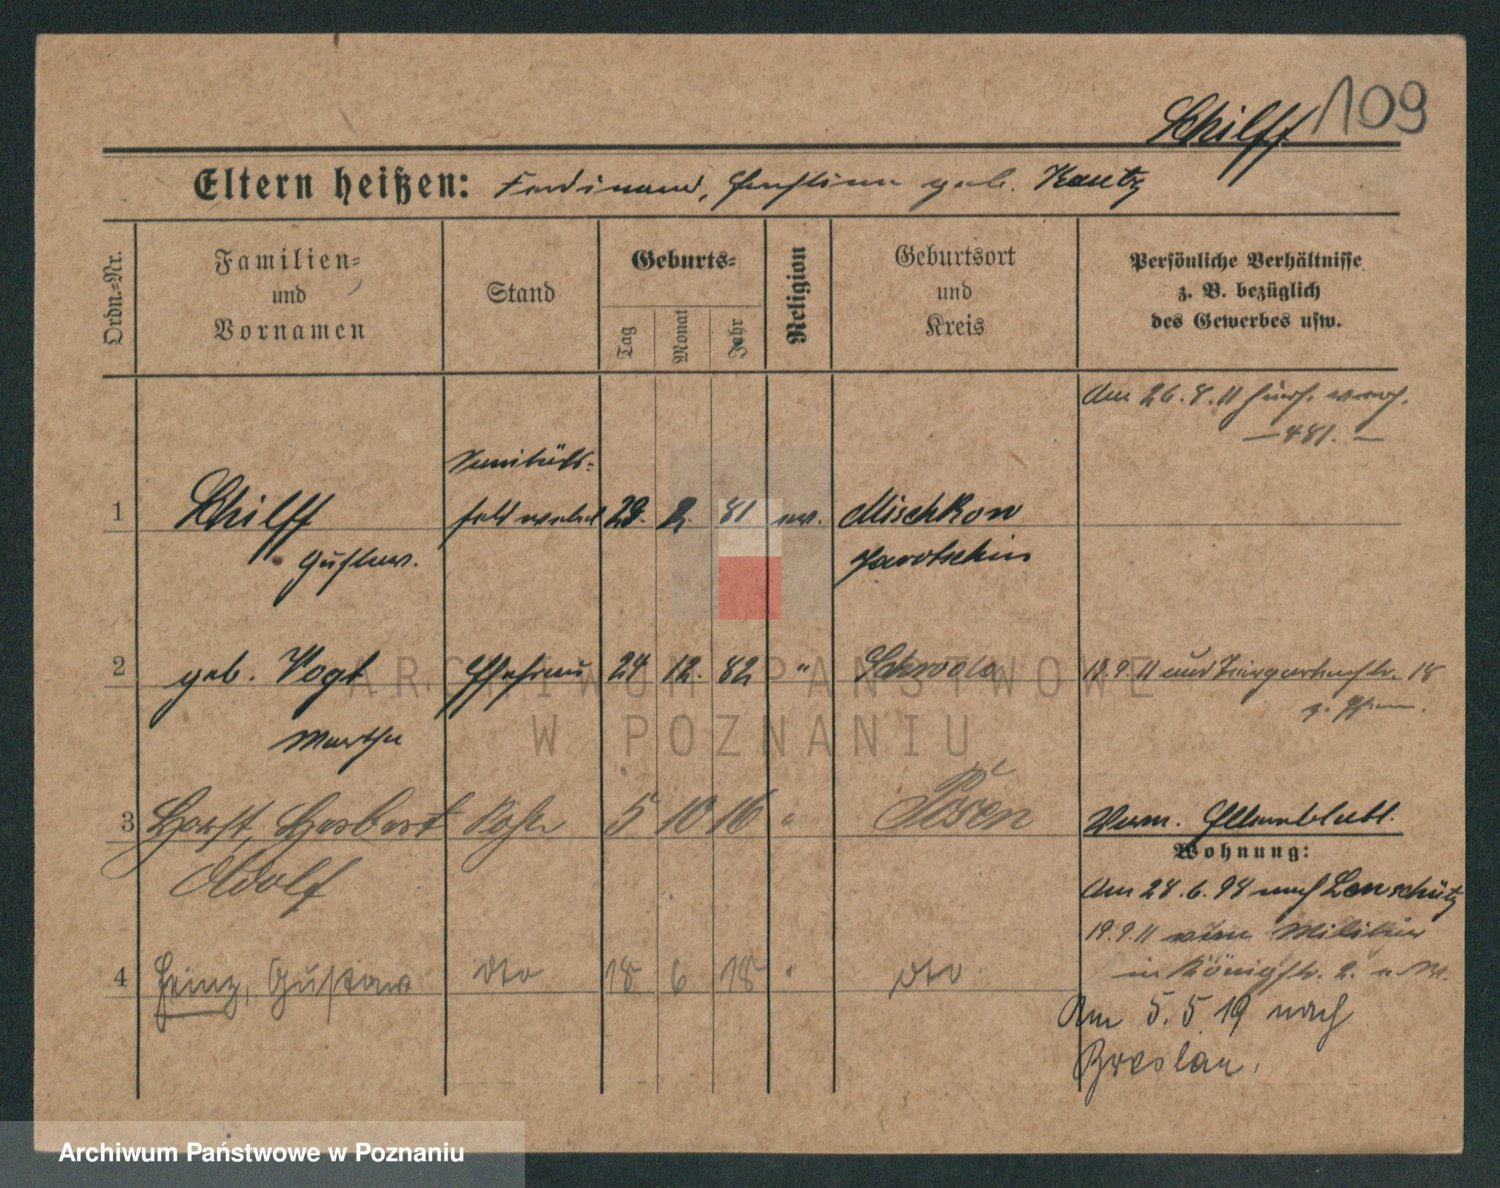 Schilff 109
Eltern heißen: Ferdinand, geb. Kautz
Ordn.-Nr.
Familien-
und
Vornamen
Stand
Geburts-
Tag
Monat
Jahr
Religion
Geburtsort
und
Kreis
Persönliche Verhältnisse
z. B. bezüglich
des Gewerbes usw.
Am 26.8.11
— 481. —
Sanitäts-
1 Schilff feldwebel 28. 2. 81 ev. Mischkow
Gustav. Jarotschin
2 geb. Vogt Ehefrau 24 12. 82 " Schroda 19.9.11 18
Martha
3 Horst, Herbert Sohn 5 10 16 " Posen
Adolf
Wohnung:
Am 28.6.98 nach
19.9.11 Militär
in Königstr. 2.
4 Heinz, Gustaw dto 18 6 18 " dto
Am 5.5.19 nach
Breslau.
ARCHIWUM PAŃSTWOWE
W POZNANIU
Archiwum Państwowe w Poznaniu